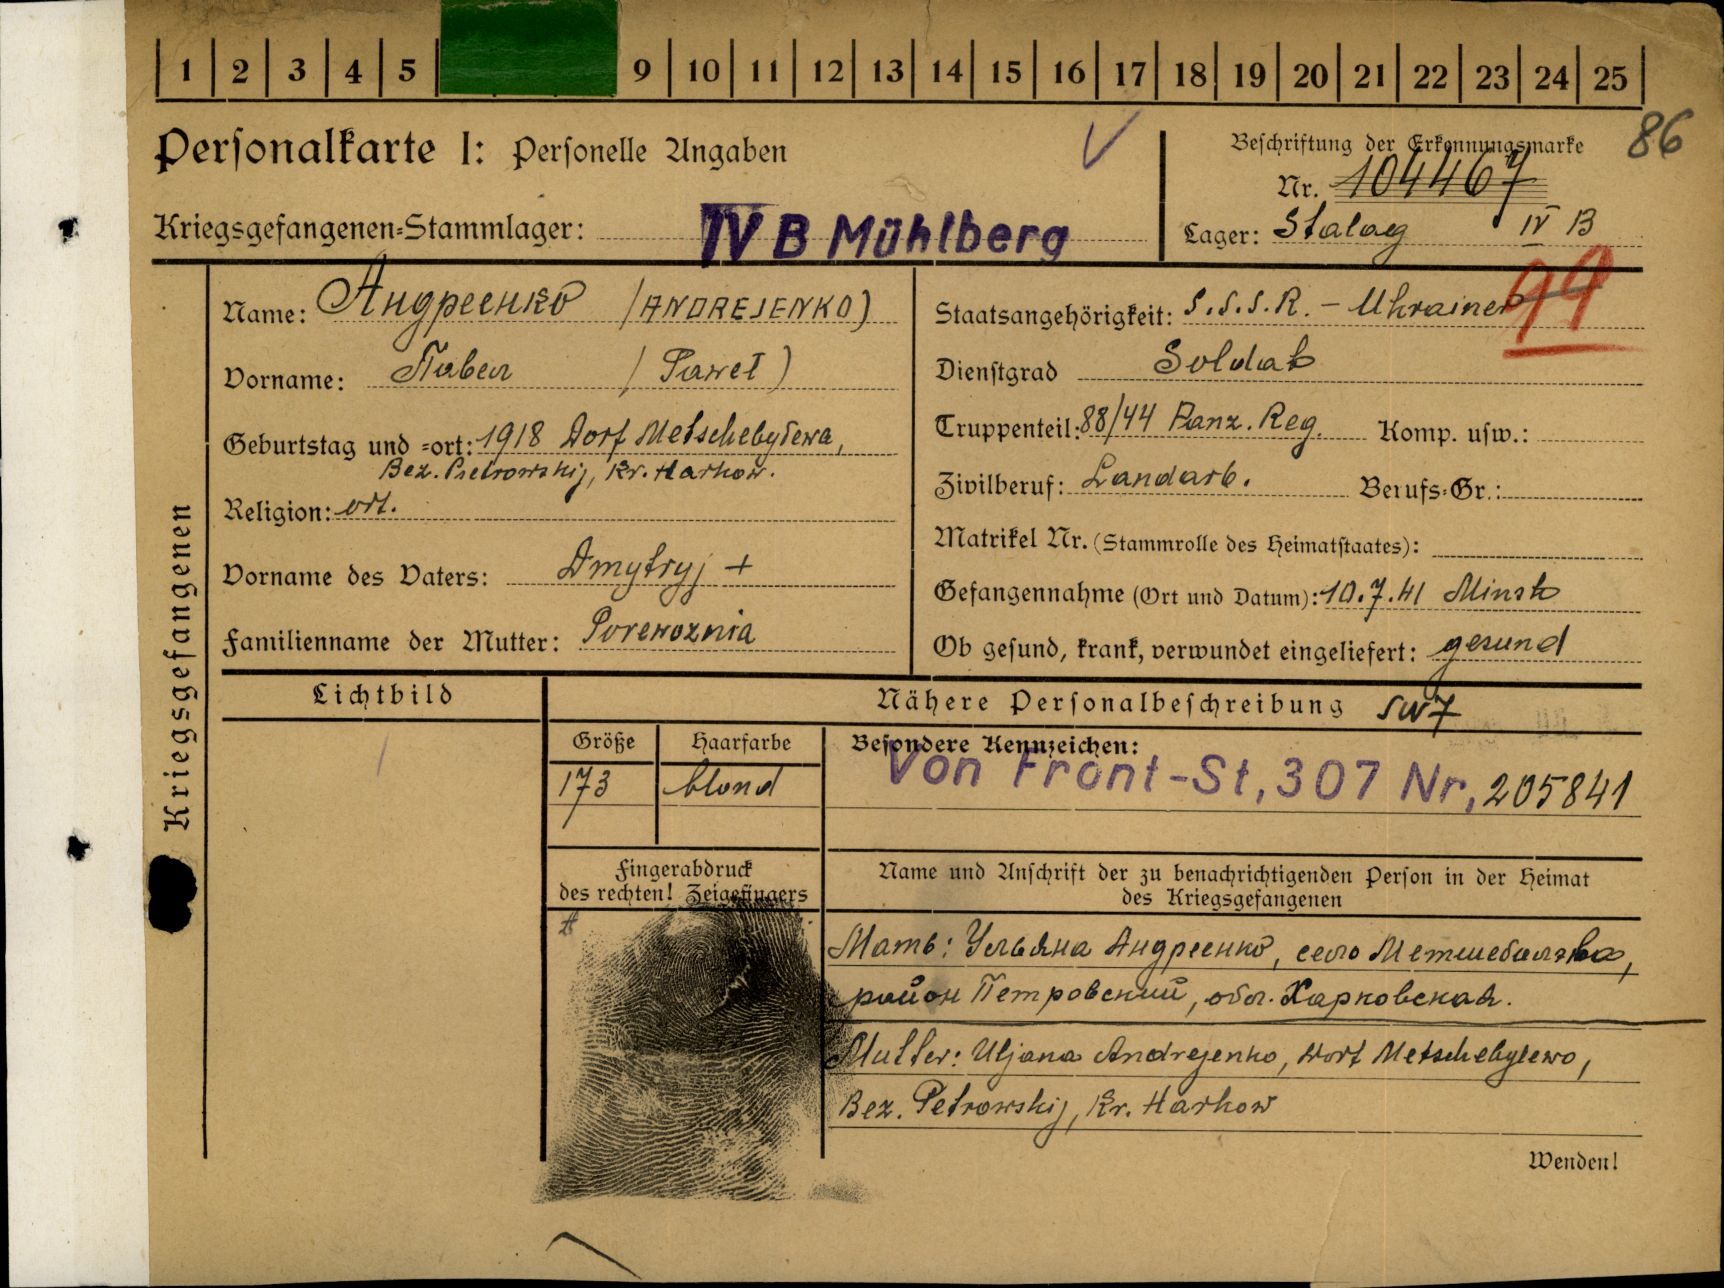 1 2 3 4 5 9 10 11 12 13 14 15 16 17 18 19 20 21 22 23 24 25
86
Personalkarte I: Personelle Angaben
Beschriftung der Erkennungsmarke
Nr. 104467
Kriegsgefangenen-Stammlager: IV B Mühlberg
Lager: Stalag IV B
99
Kriegsgefangenen
Name: Андреенко (ANDREJENKO)
Vorname: Павел (Paweł)
Geburtstag und -ort: 1918 Dorf Metschebyłewa,
Bez. Pietrowskij, Kr. Harkow.
Religion: ort.
Vorname des Vaters: Dmytryj +
Familienname der Mutter: Porewoznia
Staatsangehörigkeit: S.S.S.R. - Ukrainer
Dienstgrad Soldat
Truppenteil: 88/44 Panz. Reg. Komp. usw.:
Zivilberuf: Landarb. Berufs-Gr.:
Matrikel Nr. (Stammrolle des Heimatstaates):
Gefangennahme (Ort und Datum): 10.7.41 Minsk
Ob gesund, krank, verwundet eingeliefert: gesund
Lichtbild
Nähere Personalbeschreibung
Größe Haarfarbe Besondere Kennzeichen:
173 blond Von Front-St, 307 Nr, 205841
Fingerabdruck
des rechten! Zeigefingers
Name und Anschrift der zu benachrichtigenden Person in der Heimat
des Kriegsgefangenen
Мать: Ульяна Андреенко, село Метшебилова,
район Петровский, обл. Харковская.
Mutter: Uljana Andrejenko, Dorf Metschebyłewo,
Bez. Petrowskij, Kr. Harkow
Wenden!